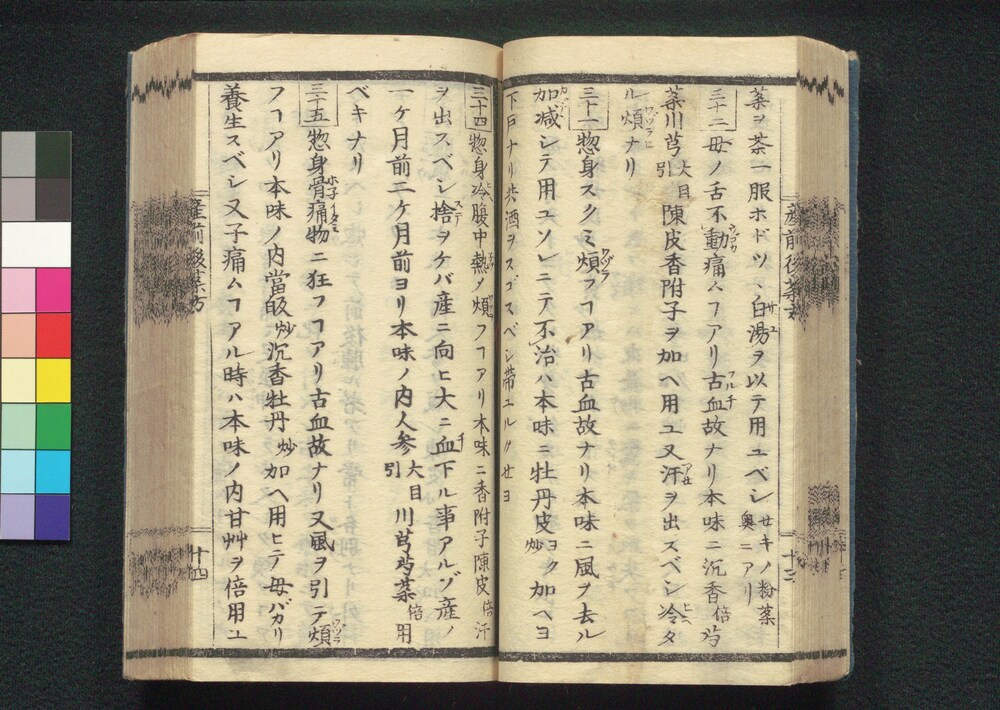 薬ヲ茶一服ホドツヽ白湯ヲ以テ用ユベシ せキノ粉薬奥ニアリ
三十二 母ノ舌不動痛ムヿアリ古血故ナリ本味ニ沉香倍芍
薬川芎大目引陳皮香附子ヲ加ヘ用ユ又汗ヲ出スベシ冷タ
ル煩ナリ
惣身スクミ煩フヿアリ古血故ナリ本味ニ風ヲ去ル
加減シテ用ユソレニテ不治ハ本味ニ牡丹皮ヨク炒加ヘヨ
下戸ナリ共酒ヲスゴスベシ帯ユルクせヨ
三十四 惣身冷腹中熱ノ煩フヿアリ本味ニ香附子陳皮倍汗
ヲ出スベシ捨ヲケバ産ニ向ヒ大ニ血下ル事アルゾ産ノ
一ケ月前二ケ月前ヨリ本味ノ内人参大目引川芎芍薬倍用
ベキナリ
三十五 惣身骨痛物ニ狂フヿアリ古血故ナリ又風ヲ引テ煩
フヿアリ本味ノ内當皈炒沉香牡丹炒加ヘ用ヒテ母バカリ
養生スベシ又子痛ムヿアル時ハ本味ノ内甘艸ヲ倍用ユ
産前後薬方
十三
産前後薬方
十四